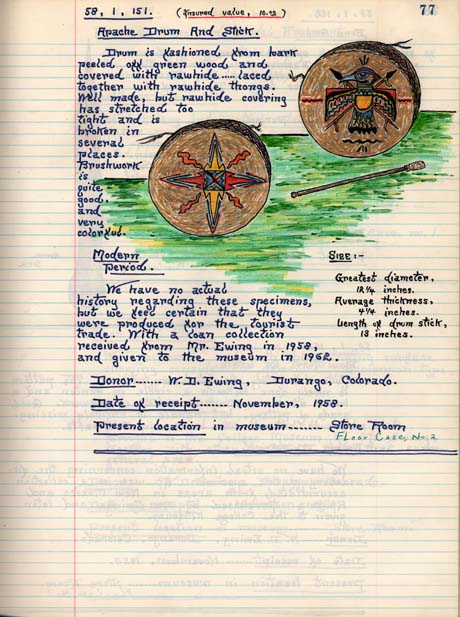 58, 1, 151.
(Insured value, 10.00)
77
Apache Drum And Stick.
Drum is fashioned from bark
peeled off green wood and
covered with rawhide ..... laced
together with rawhide thongs.
Well made, but rawhide covering
has stretched too
tight and is
broken in
several
places.
Brushwork
is
quite
good,
and
very
colorful.
Modern
Period.
We have no actual
history regarding these specimens,
but we feel certain that they
were produced for the tourist
trade. With a loan collection
received from Mr. Ewing in 1958,
and given to the museum in 1962.
Size :-
Greatest diameter,
12 1/4 inches.
Average thickness,
4 1/4 inches.
Length of drum stick,
13 inches.
Donor ....... W. D. Ewing, Durango, Colorado.
Date of receipt ....... November, 1958.
Present location in museum ....... Store Room
Floor Case, No. 2